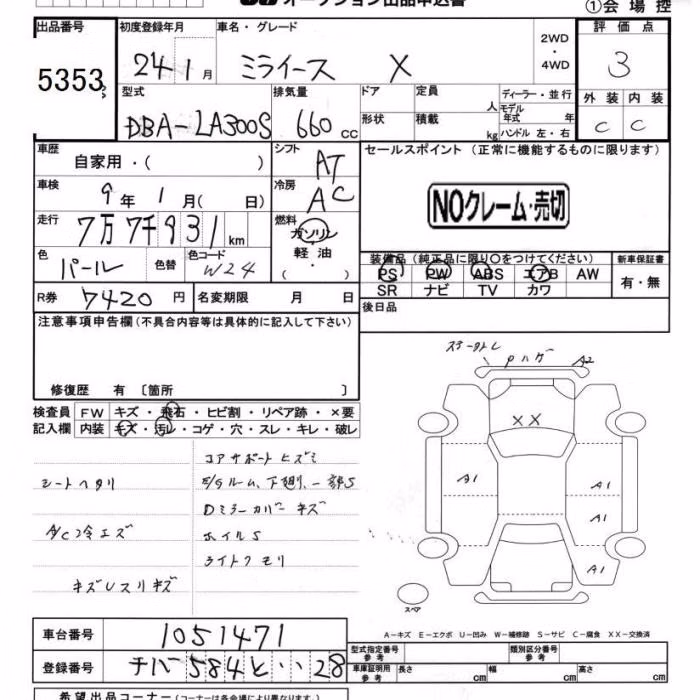 オークション出品申込書 ①会場控
出品番号 5353
初度登録年月 24 1月
車名・グレード ミライース X
2WD・4WD
評価点 3
外装 C 内装 C
型式 DBA-LA300S
排気量 660 cc
ドア 形状
定員 人 積載 kg
ディーラー・並行
モデル年式 年
ハンドル 左・右
車歴 自家用・( )
シフト AT
セールスポイント (正常に機能するものに限ります)
車検 9年 1月( 日)
冷房 AC
NOクレーム・売切
走行 7万7千931 km
燃料 ガソリン・軽油 ( )
色 パール 色替 色コード W24
装備品 (純正品に限り○をつけてください) 新車保証書
PS PW ABS エアB AW 有・無
SR ナビ TV カワ
R券 7420 円 名変期限 月 日
後日品
注意事項申告欄(不具合内容等は具体的に記入して下さい)
修復歴 有 〔箇所 〕
検査員 FW キズ・飛石・ヒビ割・リペア跡・×要
記入欄 内装 キズ・汚レ・コゲ・穴・スレ・キレ・破レ
コアサポートヒズミ
シートヘタリ
下廻、一部S
Dミラーカバーキズ
A/C冷エズ
ホイルS
ライトクモリ
Pハゲ A2
XX
A1 A1
A1
A1
スペア
A-キズ E-エクボ U-凹み W-補修跡 S-サビ C-腐食 XX-交換済
車台番号 1051471
型式指定番号 参考 類別区分番号 参考
登録番号 584と・・28
車庫証明用 参考 長さ cm 幅 cm 高さ cm
希望出品コーナー (コーナーは各会場により異なります。)